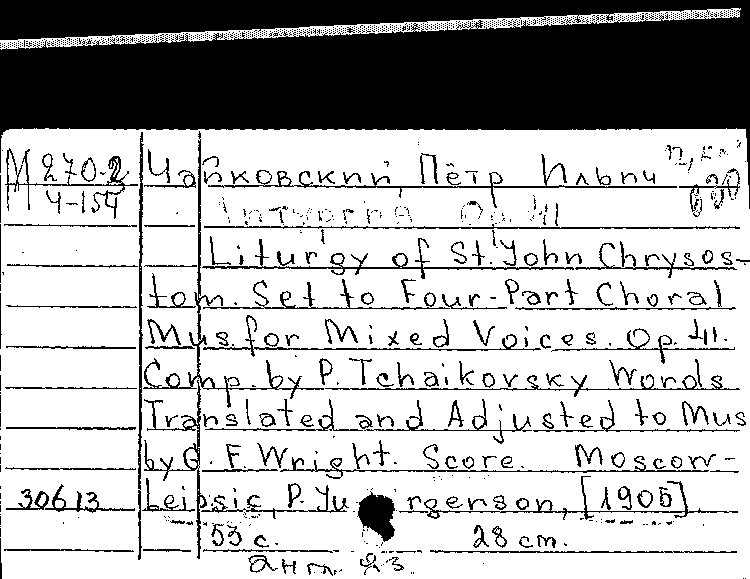 М 270-2 Чайковский, Пётр Ильич
Ч-154 Литургия Ор. 41
Liturgy of St. John Chrysos-
tom. Set to Four-Part Choral
Mus. for Mixed Voices. Op. 41.
Comp. by P. Tchaikovsky Words
Translated and Adjusted to Mus
by G. F. Wright. Score. Moscow-
30613 Leipsic, P. Yu rgenson, [1905]
53 с. 28 cm.
англ. яз.